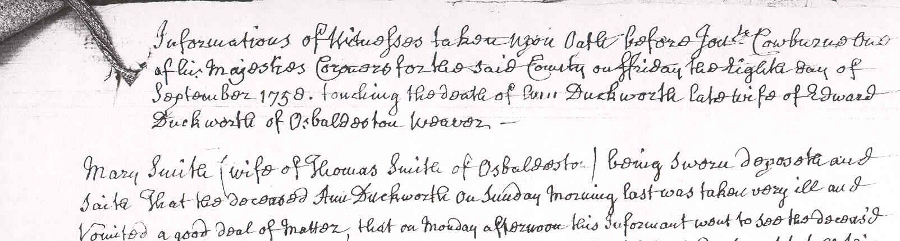 Informations of Witnesses taken upon Oath before Cowburne One
of his Majesties Coroners for the said County on ffriday the Eighth day of
September 1758. touching the death of Ann Duckworth late wife of Edward
Duckworth of Osbaldeston Weaver —
Mary Smith (wife of Thomas Smith of Osbaldeston) being sworn deposeth and
saith That the deceased Ann Duckworth on Sunday Morning last was taken very ill and
Vomited a good deal of Matter, that on Monday afternoon this Informant went to see the deceas'd